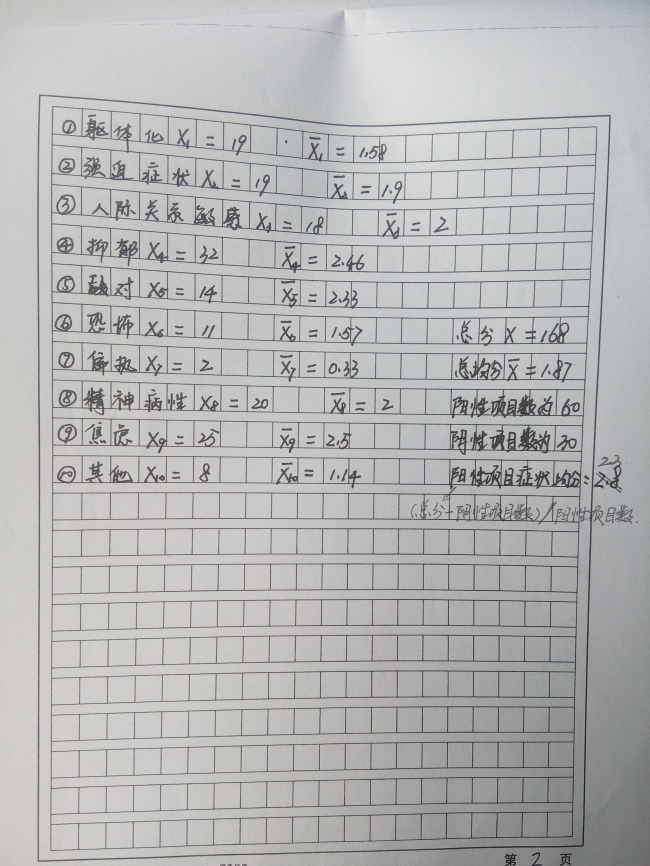 ① 躯体化 X₁ = 19 . X̅₁ = 1.58
② 强迫症状 X₂ = 19 X̅₂ = 1.9
③ 人际关系敏感 X₃ = 18 X̅₃ = 2
④ 抑郁 X₄ = 32 X̅₄ = 2.46
⑤ 敌对 X₅ = 14 X̅₅ = 2.33
⑥ 恐怖 X₆ = 11 X̅₆ = 1.57 总分 X = 168
⑦ 偏执 X₇ = 2 X̅₇ = 0.33 总均分 X̅ = 1.87
⑧ 精神病性 X₈ = 20 X̅₈ = 2 阳性项目数为 60
⑨ 焦虑 X₉ = 25 X̅₉ = 2.5 阴性项目数为 30
⑩ 其他 X₁₀ = 8 X̅₁₀ = 1.14 阳性项目症状均分 = 2.3
(总分-阴性项目数)/阳性项目数.
第 2 页